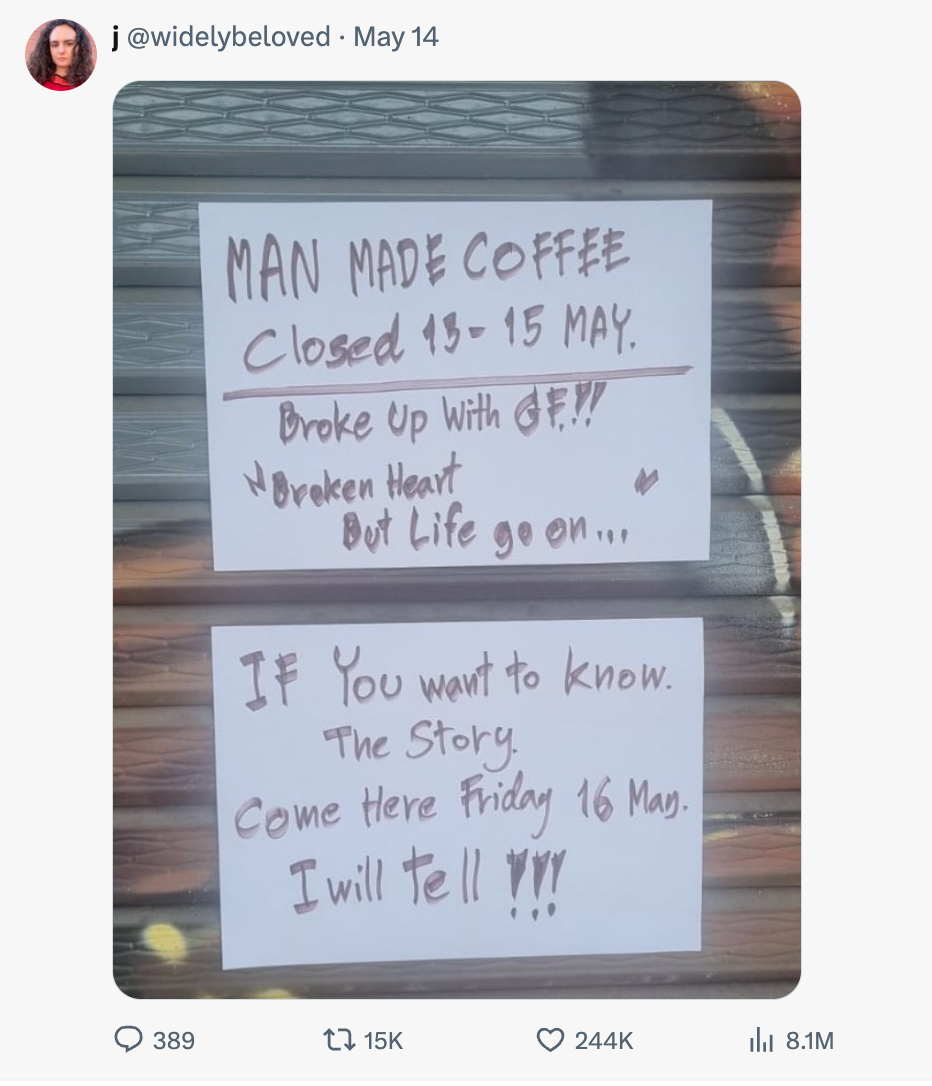 j @widelybeloved · May 14
MAN MADE COFFEE
Closed 13-15 MAY.
Broke Up With GF.!!
Broken Heart
But Life go on...
IF You want to know.
The Story.
Come Here Friday 16 May.
I will Tell !!!
389 15K 244K 8.1M